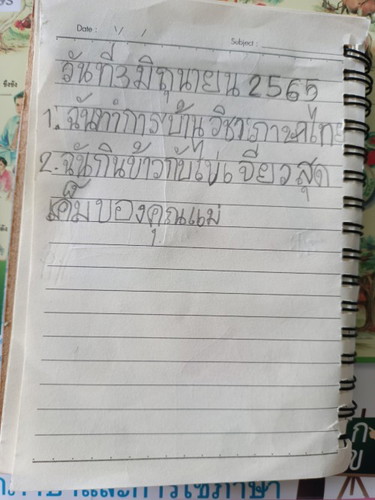 Date :
Subject :
วันที่3 มิถุนายน 2565
1. ฉันทำการบ้าน วิชาภาษาไทย
2. ฉันกินข้าวกับไข่เจียวสุด
เค็มของคุณแม่